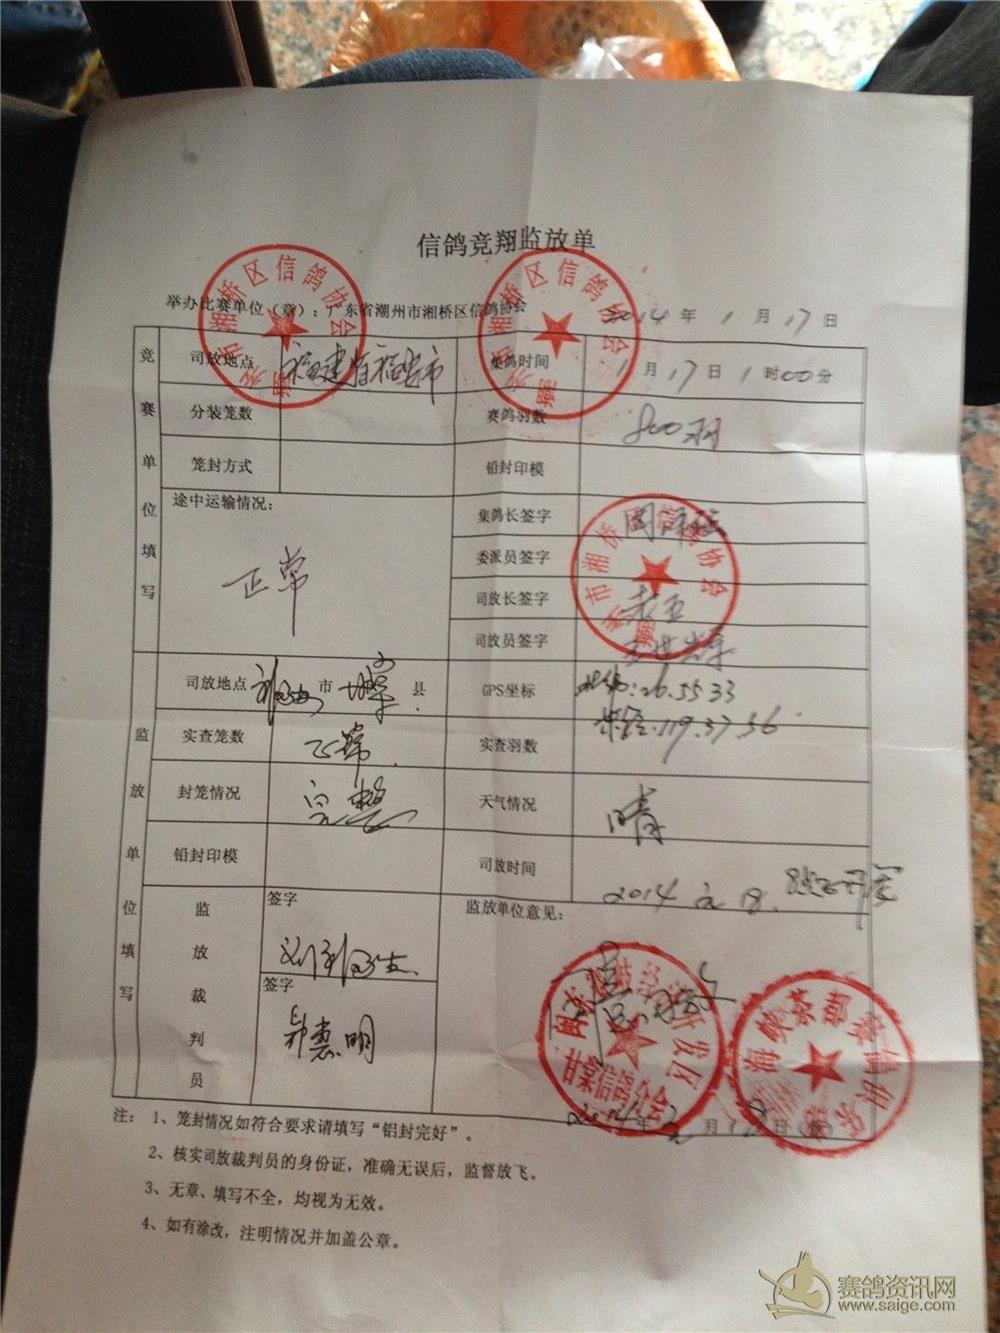 信鸽竞翔监放单
举办比赛单位（章）：广东省潮州市湘桥区信鸽协会 2014 年 1 月 17 日
竞赛单位填写
司放地点 福建省福安市 集鸽时间 1 月 17 日 1 时 00 分
分装笼数 赛鸽羽数 800羽
笼封方式 铅封印模
途中运输情况： 集鸽长签字
正常 委派员签字
司放长签字
司放员签字
监放单位填写
司放地点 市 县 GPS坐标 北纬:26.55.33
东经:119.37.36
实查笼数 正常 实查羽数
封笼情况 完整 天气情况 晴
铅封印模 司放时间 2014
监放裁判员 签字 监放单位意见：
签字
惠明
年 月 18 日
注： 1、笼封情况如符合要求请填写“铝封完好”。
2、核实司放裁判员的身份证，准确无误后，监督放飞。
3、无章、填写不全，均视为无效。
4、如有涂改，注明情况并加盖公章。
市湘桥区信鸽协会
市湘桥区信鸽协会
市湘桥区信鸽协会
经济开发区
甘棠信鸽分会
海峡茶都赛鸽俱乐部
赛鸽资讯网
www.saige.com